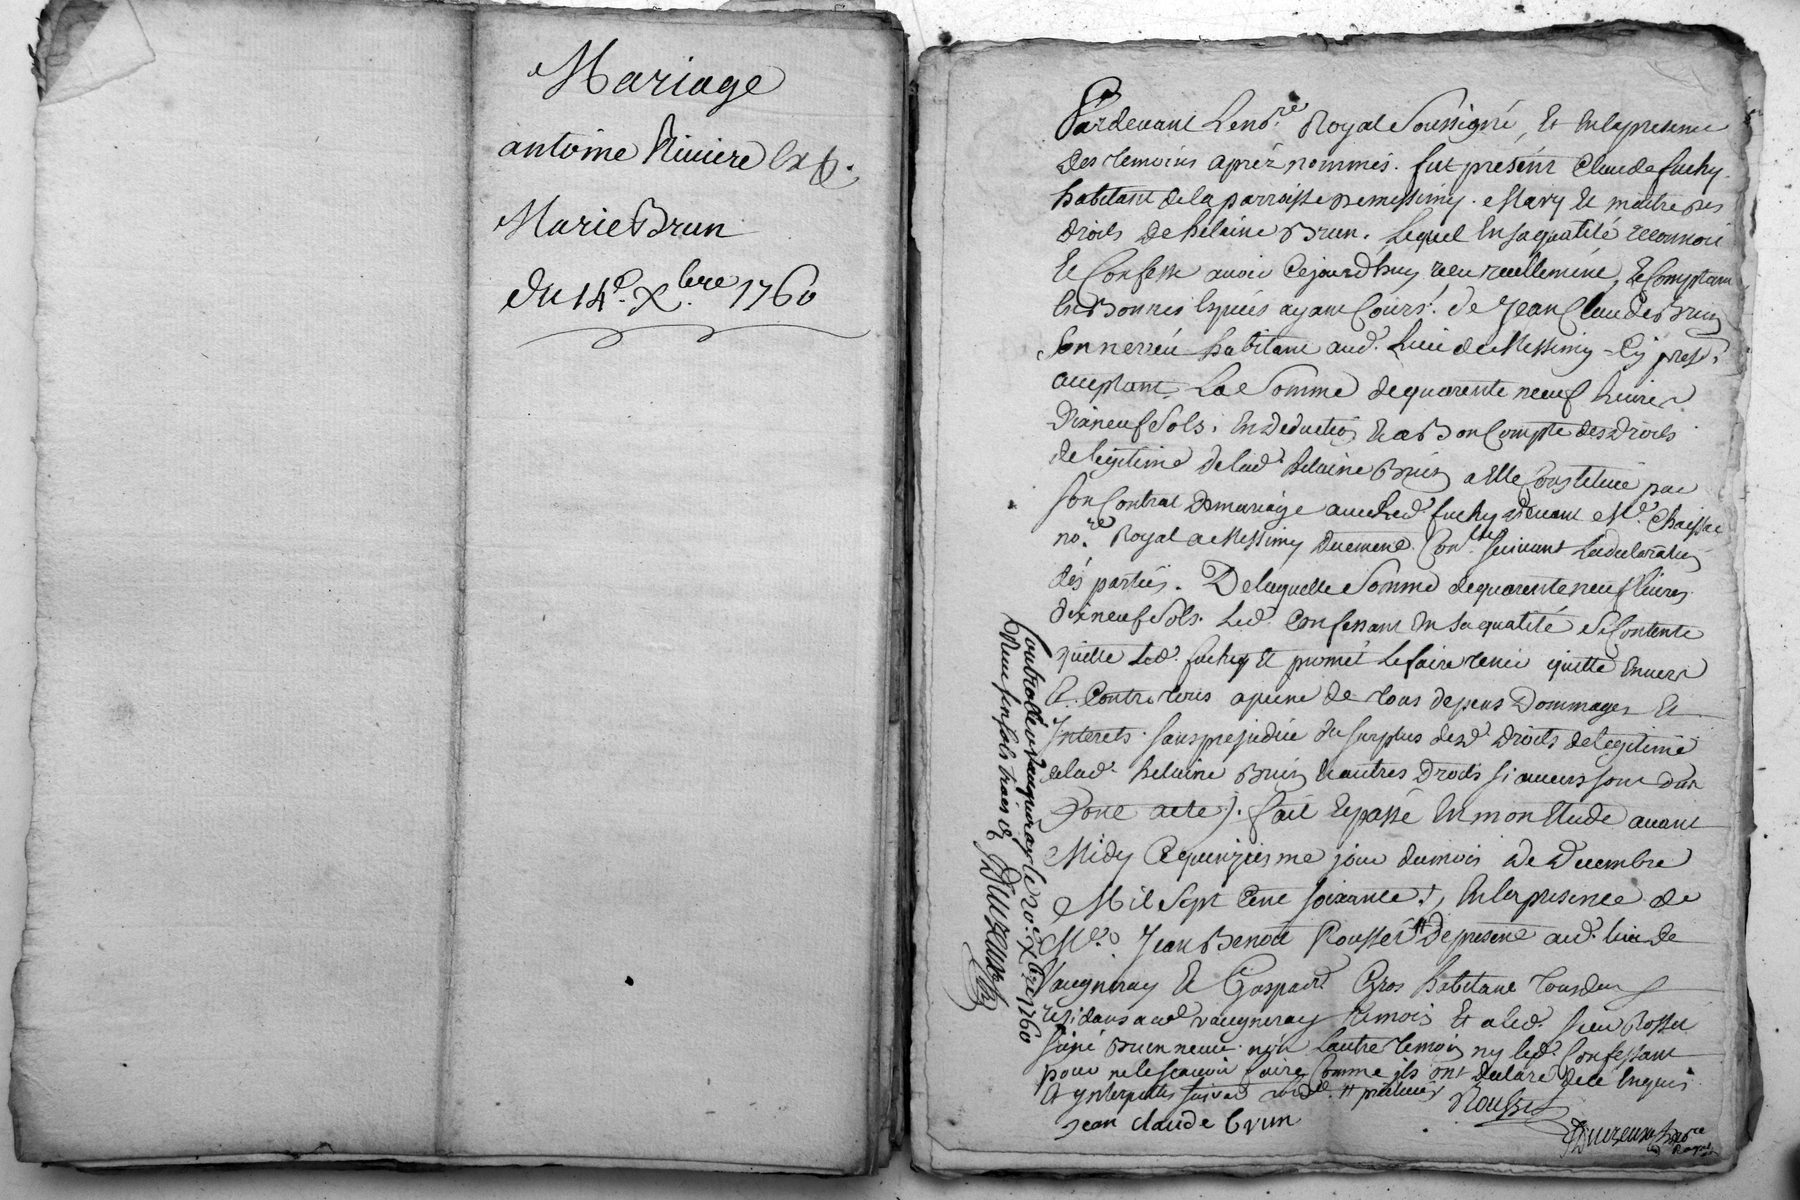 Mariage
antoine Riviere Exp.
Marie Brun
du 14e. Xbre 1760
Pardevant Le nore. Royal Soussigné, Et En la presence
des temoins aprèz nommés. fut présent Claude fuchy
habitant de la parroisse de messimy. Mary Et maitre des
droits de helaine Brun. Lequel En sa qualité reconnoit
Et Confesse avoir Cejourdhuy receu reellement, Et Comptant
En Bonnes Especes ayant Cours. de Jean Claude Brun
Son neveu habitant aud. Lieu de Messimy Cy prest.
acceptant La Somme de quarente neuf Livres
Dixneuf Sols. En Deduction Et a Bon Compte des Droits
de legitime de lad. helaine Brun a Elle Constitués par
son Contrat de mariage avec Led. fuchy devant Me.
nore. Royal a Messimy Duement Conllé suivant La declaration
des parties. De laquelle Somme de quarente neuf livres
dixneuf Sols. Led. Confessant En sa qualité Se Contente
quitte Led. et promet Le faire tenir quitte Envers
Et Contre tous a peine de tous depens Dommages Et
Interets. sans prejudice du surplus desd. Droits de legitime
de lad. helaine Brun Et autres Droits si aucuns sont Dus
Dont acte). fait Et passé En mon Etude avant
Midy Ce quinzieme jour du mois de Decembre
Mil Sept Cent soixante!, En la presence de
Me. Jean Benoit Rousset # De present aud. lieu de
Vaugneray Et Gaspard Gros habitant tous deux
residans aud vaugneray temoins Et a led. sieur Rosset
signé Brun neveu non Lautre temoin ny led. Confessant
pour ne le scavoir faire Comme ils ont Declaré de ce Enquis
Et ynterpellés suivant # praticien Rousset
jean claude brun
Royal
Controllé a Vaugneray le 20e. Xbre 1760
Reçeu